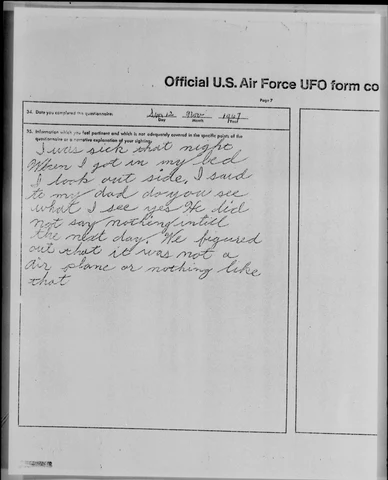 Official U.S. Air Force UFO form co
Page 7
34. Date you completed the questionnaire:
12 Nov 1967
Day Month Year
35. Information which you feel pertinent and which is not adequately covered in the specific points of the
questionnaire or a narrative explanation of your sighting.
I was sick that night
When I got in my bed
I look out side, I said
to my dad do you see
what I see yes He did
not say nothing untill
the next day. We figured
out that it was not a
air plane or nothing like
that